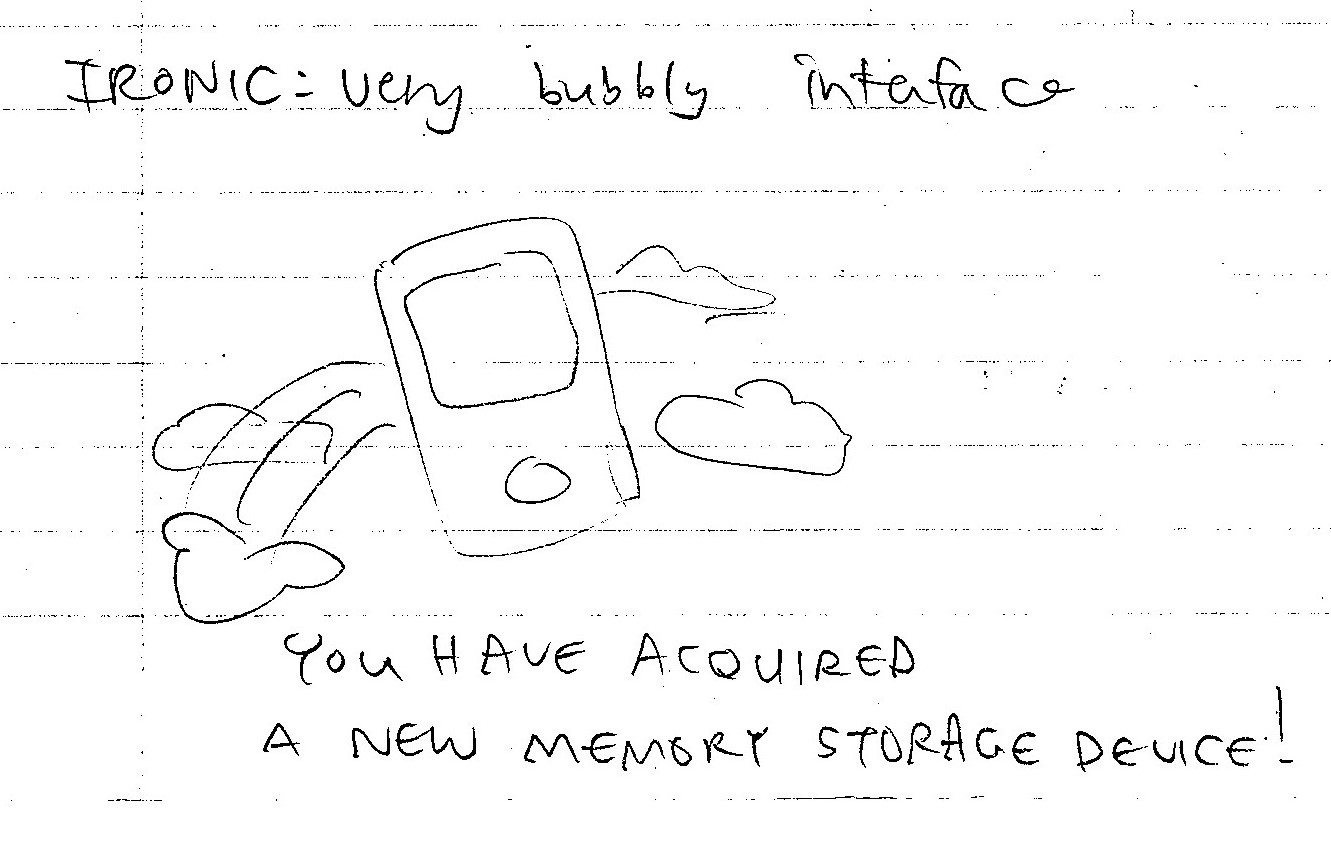 IRONIC: very bubbly interface
YOU HAVE ACQUIRED
A NEW MEMORY STORAGE DEVICE!